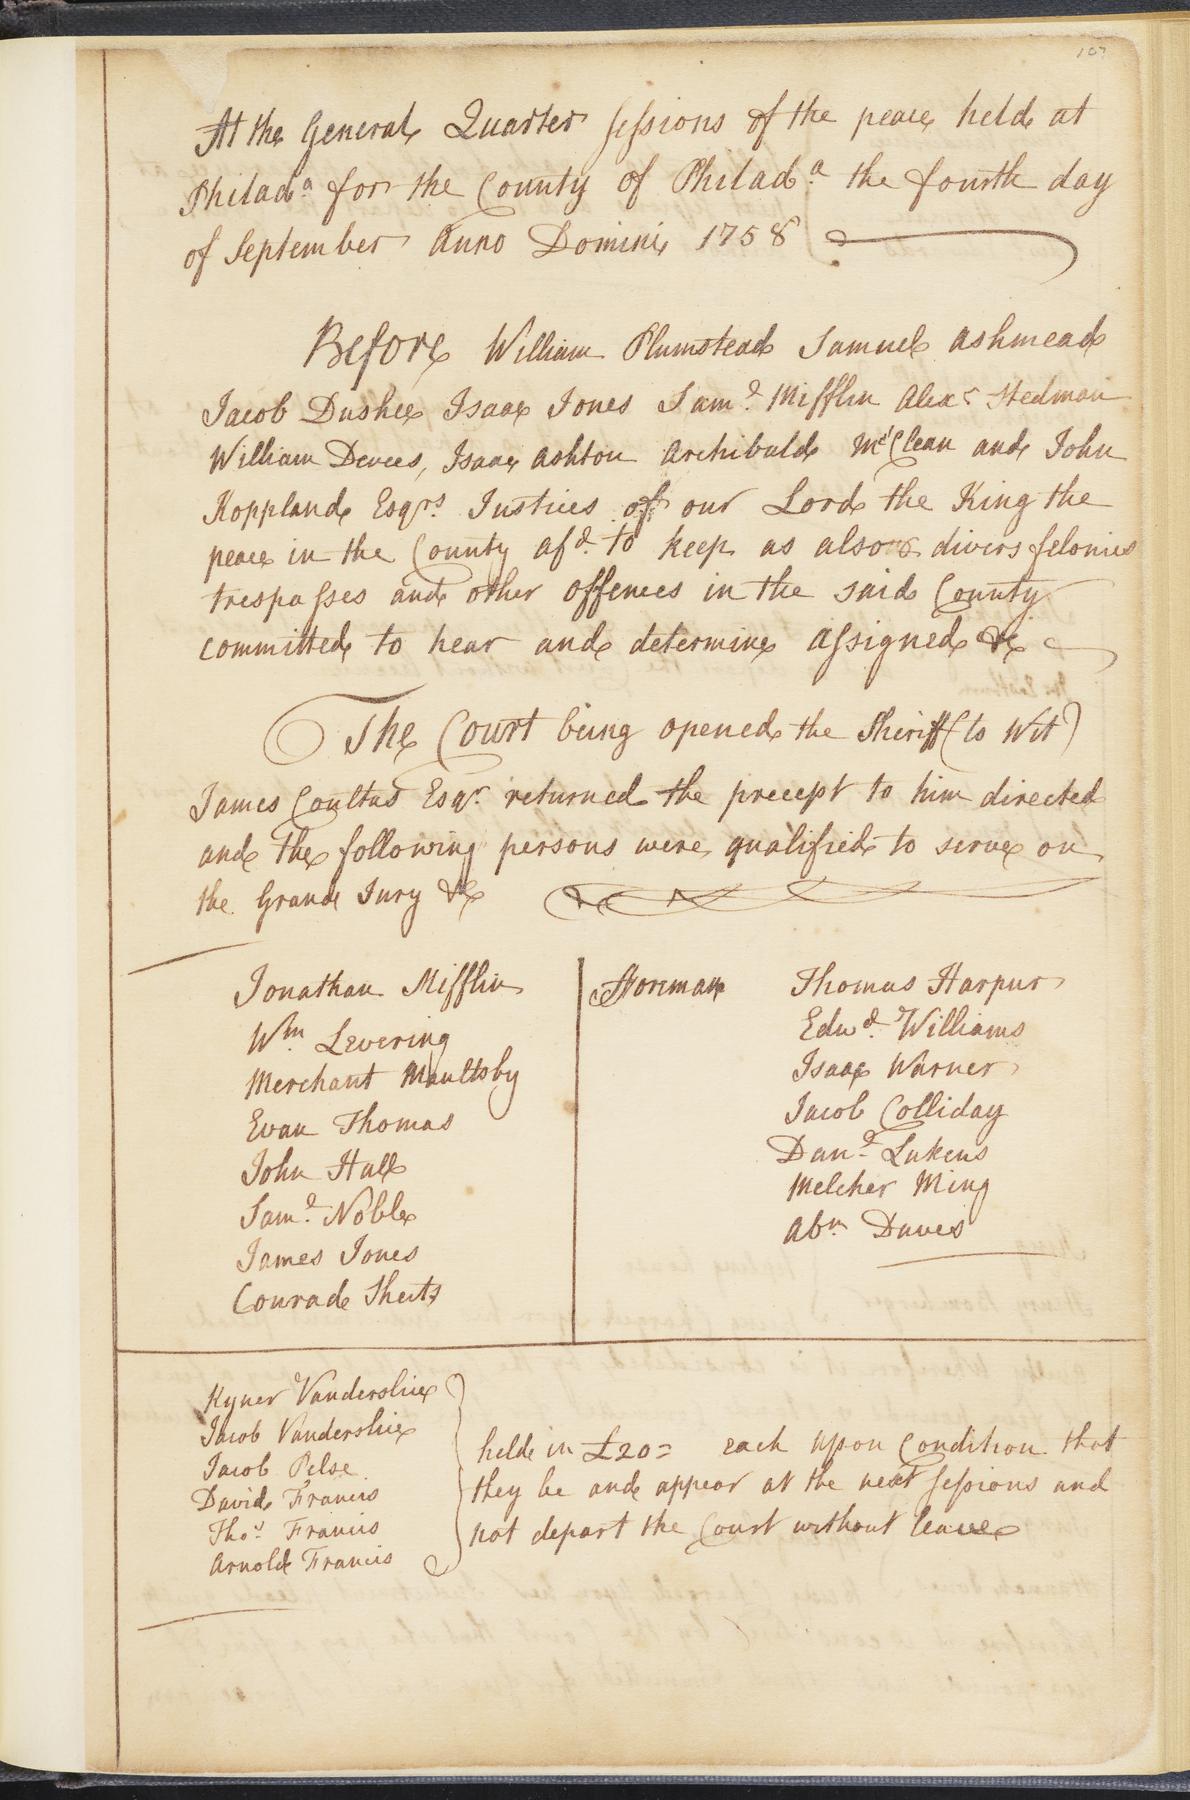 107
At the General Quarter sessions of the peace held at
Philad.a for the County of Philad.a the fourth day
of September Anno Domini 1758
Before William Plumstead Samuel Ashmead
Jacob Dushee Isaac Jones Sam.l Mifflin Alex.r Stedman
William Dewees, Isaac Ashton Archibald McClean and John
Koppland Esqrs. Justices of our Lord the King the
peace in the County afd. to keep as also divers felonies
trespasses and other offences in the said County
committed to hear and determine assigned &c
The Court being opened the Sheriff (to Wit)
James Coultas Esqr. returned the precept to him directed
and the following persons were qualified to serve on
the Grand Jury &c
Jonathan Mifflin Foreman
Wm. Levering
Merchant Maultsby
Evan Thomas
John Hall
Sam.l Noble
James Jones
Conrade Sheets
Thomas Harpur
Edwd. Williams
Isaac Warner
Jacob Colliday
Dan.l Lukens
Melcher Ming
Abm. Daves
Kyner Vanderslice
Jacob Vanderslice
Jacob Pelse
David Francis
Thos. Francis
Arnold Francis
held in £20= each upon Condition that
they be and appear at the next sessions and
not depart the Court without leave